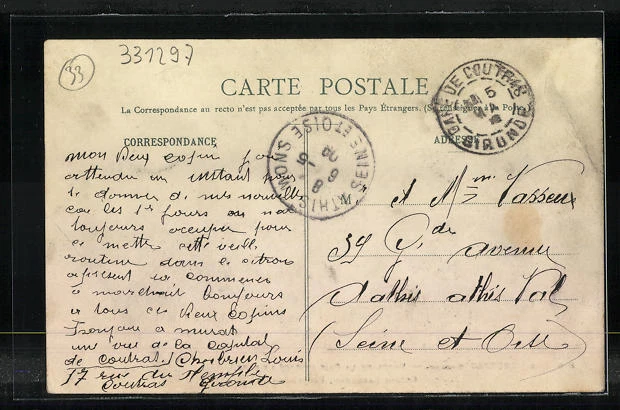 331297
33
CARTE POSTALE
La Correspondance au recto n'est pas acceptée par tous les Pays Étrangers. (Se renseigner à la Poste)
CORRESPONDANCE
ADRESSE
GARE DE COUTRAS
GIRONDE
ATHIS-MONS
SEINE ET OISE
mon vieux copin pour
attendu un instant pour
te donner de mes nouvelles
car les 1er jours on
toujours occuper pour
mettre cette vieille
routine dans le citron
apresent sa commence
a marcher bonjours
a tous ces vieux copins
Françou a murat
une vue de la Capital
de coutras / Chabrier Louis
17 rue du Temple
Coutras Gironde
M. et Mme Vasseur
39 Gde avenue
d'athis athis Val
(Seine et Oise)